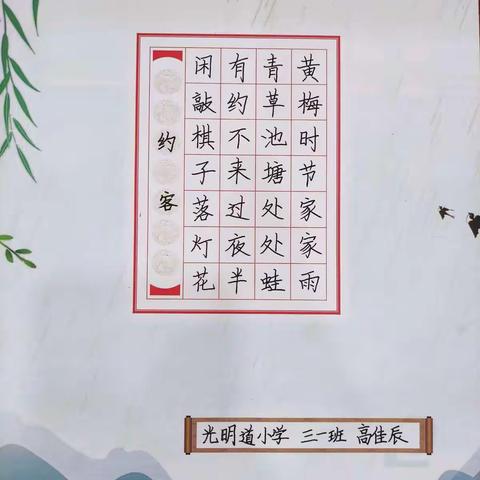 约客
黄梅时节家家雨
青草池塘处处蛙
有约不来过夜半
闲敲棋子落灯花
光明道小学 三一班 高佳辰